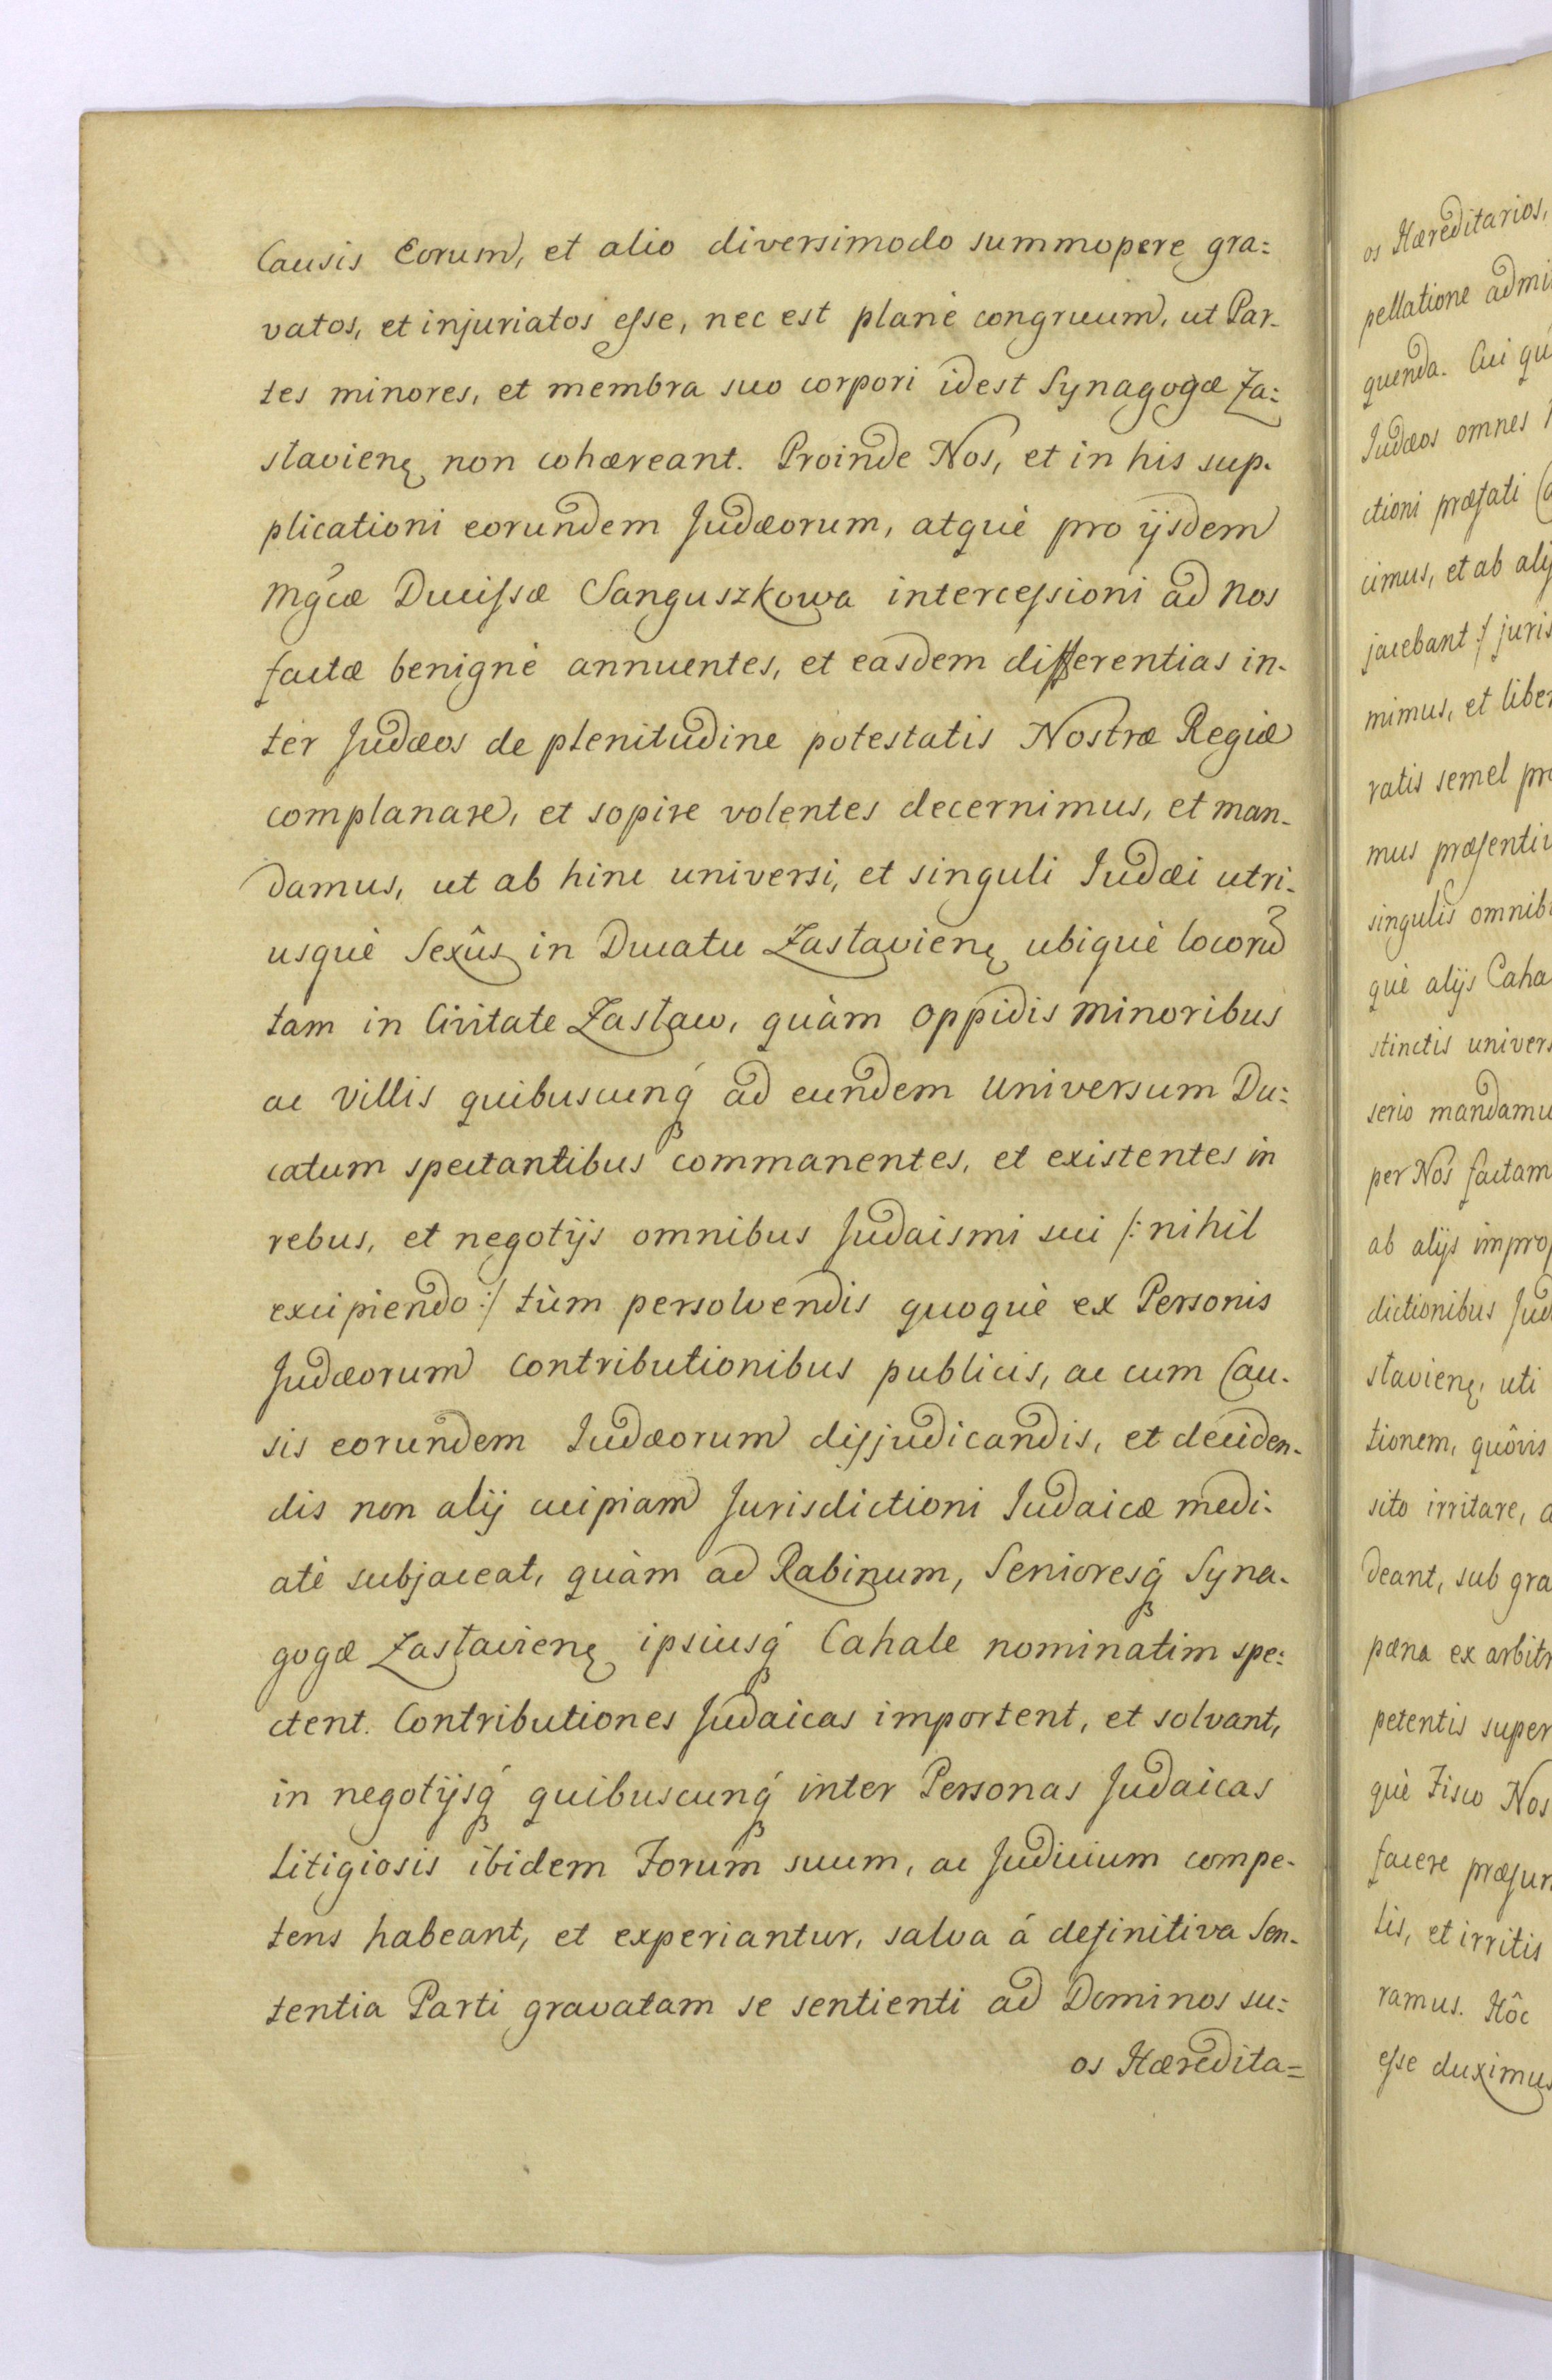 Causis Eorum, et alio diversimodo summopere gra:
vatos, et injuriatos esse, nec est planè congruum, ut Par-
tes minores, et membra suo corpori idest Synagogæ Za:
slavienę non cohæreant. Proinde Nos, et in his sup-
plicationi eorundem Judæorum, atquè pro ijsdem
Mgcæ Ducissæ Sanguszkowa intercessioni ad Nos
factæ benignè annuentes, et easdem differentias in-
ter Judæos de plenitudine potestatis Nostræ Regiæ
complanare, et sopire volentes decernimus, et man-
damus, ut ab hinc universi, et singuli Judæi utri-
usquè Sexûs in Ducatu Zaslavienę ubiquè locorũ
tam in Civitate Zasław, quàm Oppidis minoribus
ac Villis quibuscunq́ ad eundem Universum Du:
catum spectantibus commanentes, et existentes in
rebus, et negotijs omnibus Judaismi sui /: nihil
excipiendo :/ tùm persolvendis quoquè ex Personis
Judæorum Contributionibus publicis, ac cum Cau-
sis eorundem Judæorum disjudicandis, et deciden-
dis non alij cuipiam Jurisdictioni Judaicæ medi-
atè subjaceat, quàm ad Rabinum, Senioresq́ Syna-
gogæ Zasłavienę ipsiusq́ Cahale nominatim spe:
ctent. Contributiones Judaicas importent, et solvant,
in negotijsq́ quibuscunq́ inter Personas Judaicas
Litigiosis ibidem Forum suum, ac Judicium compe-
tens habeant, et experiantur, salva á definitiva Sen-
tentia Parti gravatam se sentienti ad Dominos su:
os Hæredita=
os Hæreditarios,
pellatione admi
quenda. Cui qu
Judæos omnes
ctioni præfati
cimus, et ab alij
jacebant :/ juris
mimus, et liber
ratis semel pro
mus præsenti
singulis omnib
què alijs Caha
stinctis univers
serio mandamu
per Nos factam
ab alijs improp
dictionibus Jud
slavienę, uti
tionem, quôvis
sito irritare, a
deant, sub gra
pæna ex arbitr
petentis super
què Fisco Nos
facere præsun
tis, et irritis
ramus. Hôc
esse duximus